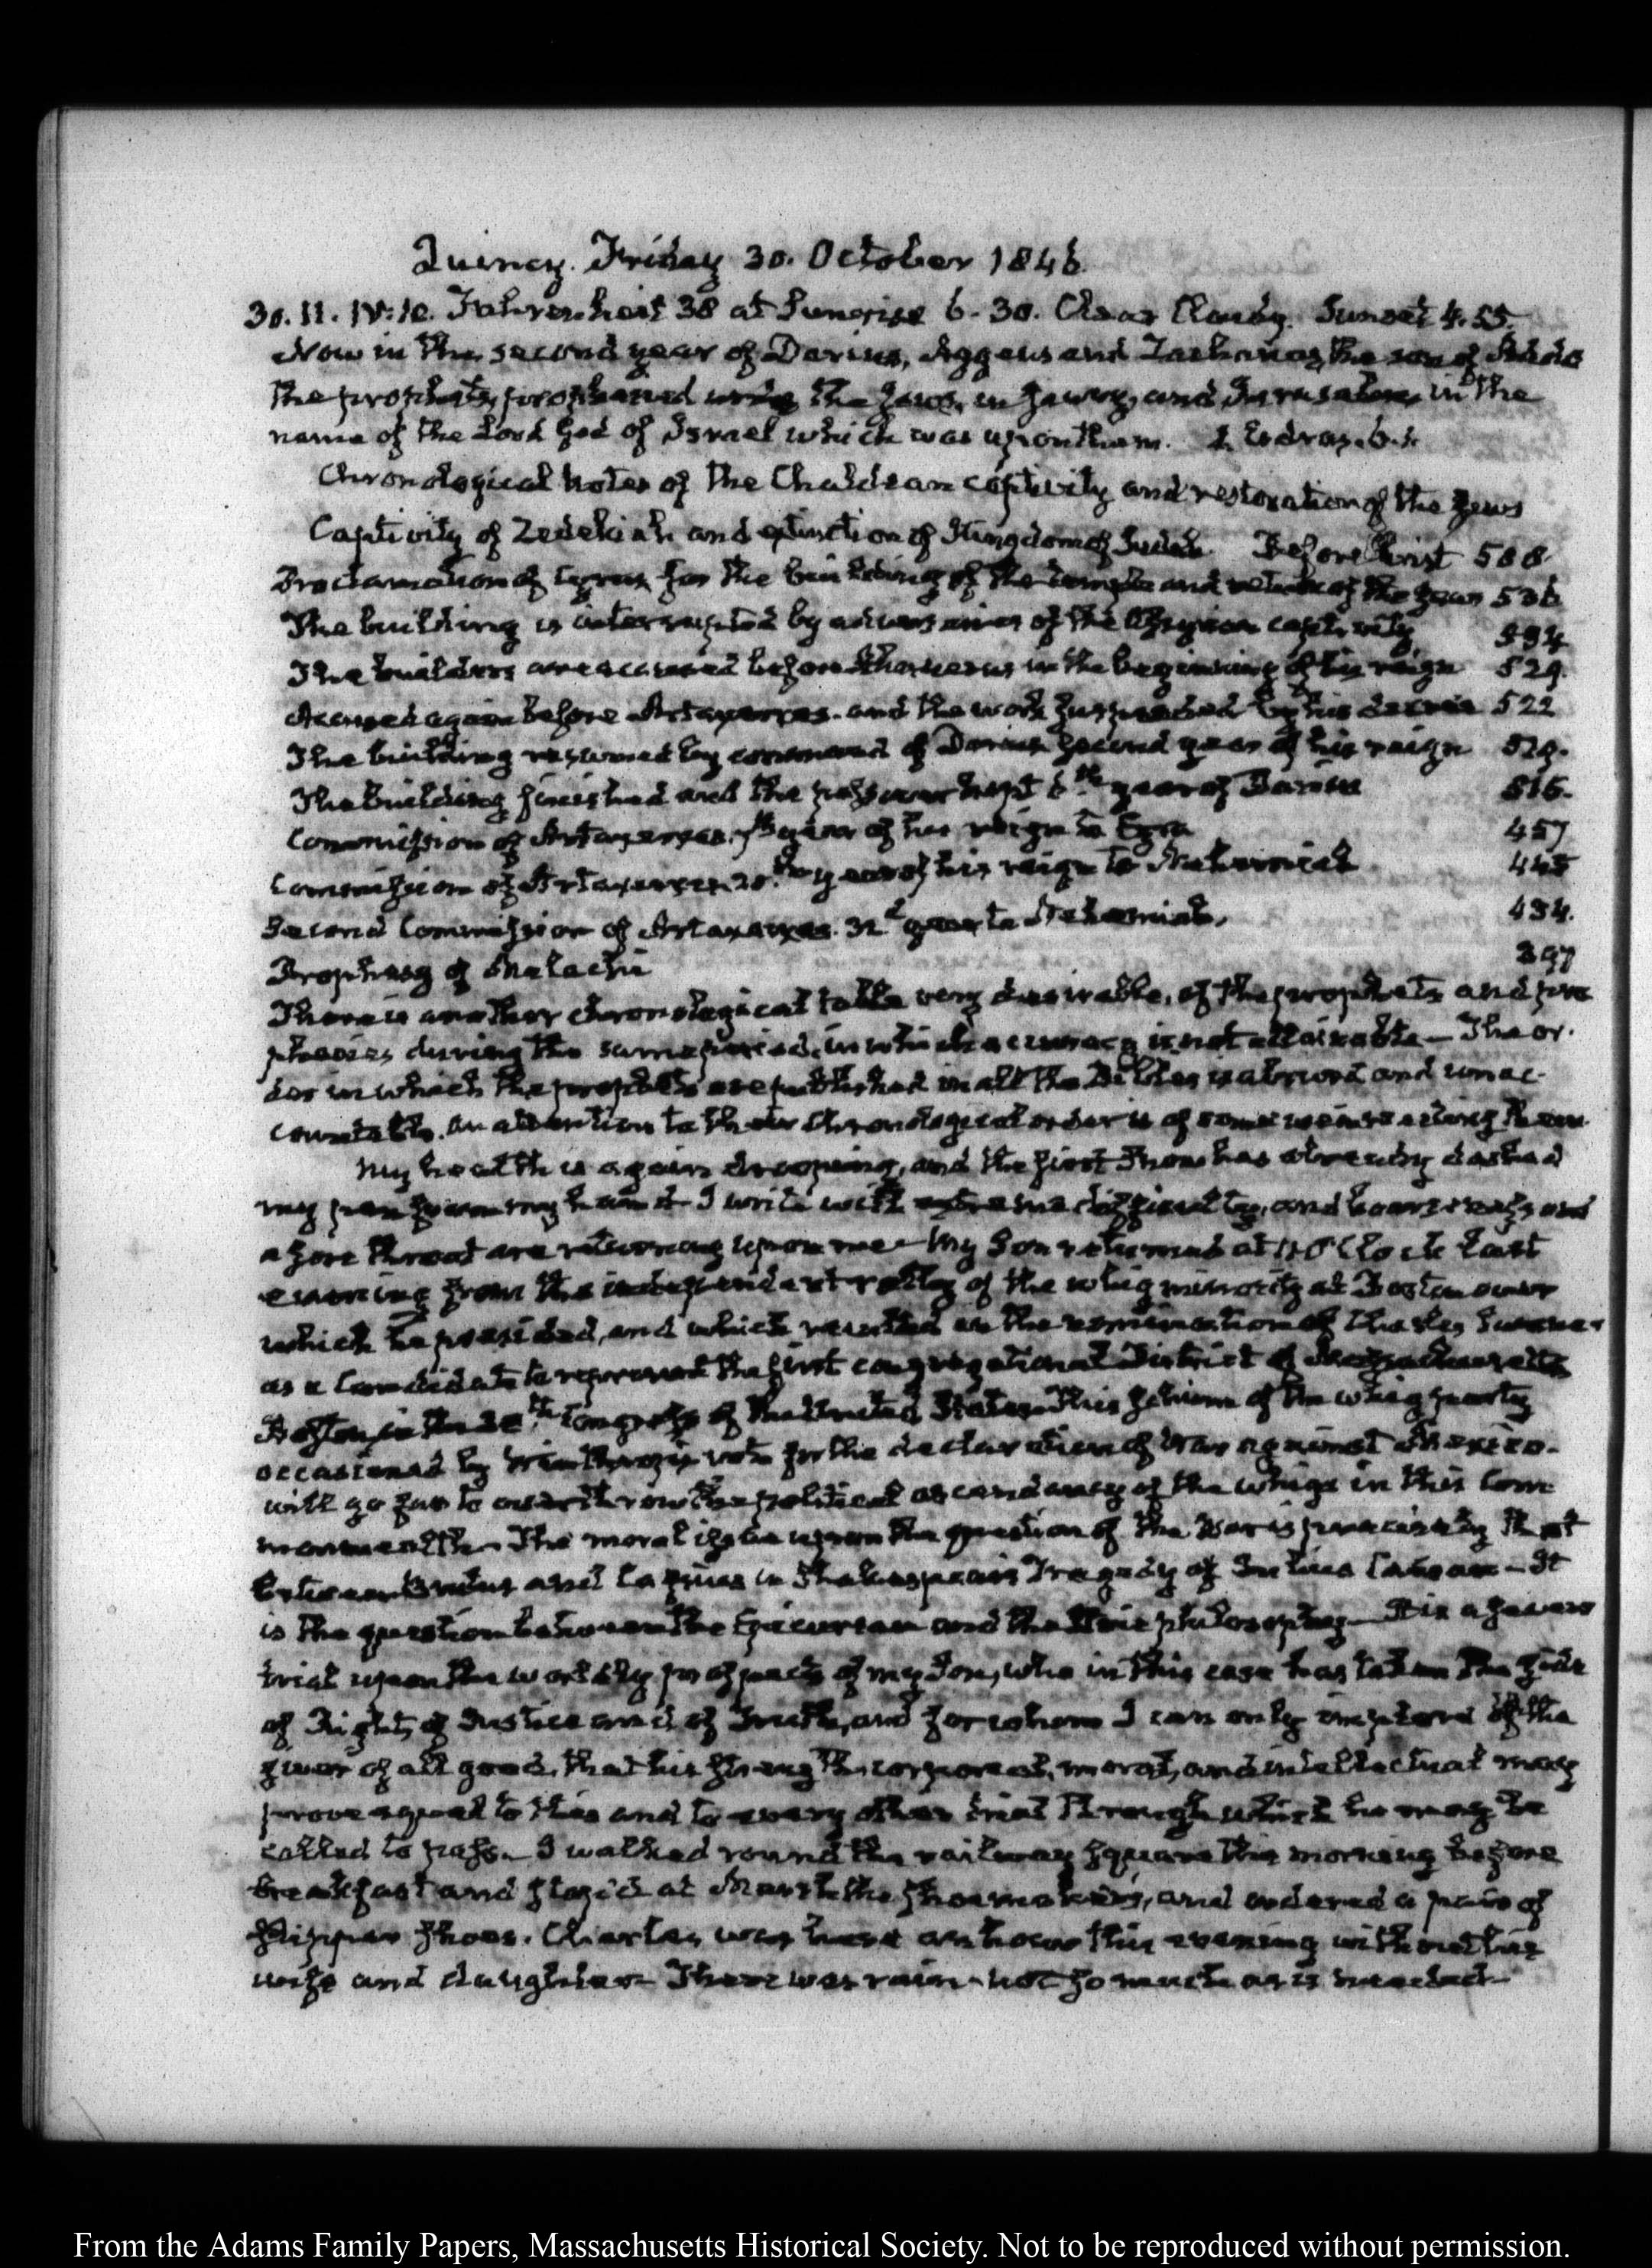 Quincy. Friday 30. October 1846.
30. II. IV:10. Fahrenheit 38 at Sunrise 6.30. Clear Cloudy. Sunset 4.55.
Now in the second year of Darius, Aggeus and Zacharias, the son of Addo
the prophets, prophesied unto the Jews, in Jewry, and Jerusalem in the
name of the Lord God of Israel which was upon them. 1. Esdras. 6.1.
Chronological notes of the Chaldean captivity and restoration of the Jews
Captivity of Zedekiah and extinction of Kingdom of Judah. Before Christ 588.
Proclamation of Cyrus for the building of the temple and return of the Jews 536
The building is interrupted by adversaries of the Assyrian captivity 534
The builders are accused before Ahasuerus in the beginning of his reign 529.
Accused again before Artaxerxes. and the work suspended by his decree 522
The building resumed by command of Darius second year of his reign 520.
The building finished and the passover kept 6th year of Darius 515.
Commission of Artaxerxes. 7th year of his reign to Ezra 457
Commission of Artaxerxes 20th year of his reign to Nehemiah 445
Second Commission of Artaxerxes. 32d year to Nehemiah, 434.
Prophesy of Malachi 397
There is another chronological table very desirable, of the prophets and pro
phecies during the same period, in which accuracy is not attainable — The or
der in which the prophets are published in all the Bibles is absurd and unac
countable. an attention to their chronological order is of some
My health is again drooping, and the first Snow has already dashed
my pen from my hand — I write with extreme difficulty, and hoarseness and
a sore throat are returning upon me — My Son returned at 11 O'Clock last
evening from the independent rally of the whig minority at Boston over
which he presided, and which resulted in the nomination of Charles Sumner
as a Candidate to represent the first congregational District of Massachusetts
Boston, in the 30th Congress of the United States. This schism of the whig party
occasioned by Winthrop's vote for the declaration of War against Mexico.
will go far to overthrow the political ascendancy of the whigs in this Com
monwealth. The moral issue upon the question of the War is precisely that
between Brutus and Cassius in Shakespear's Tragedy of Julius Caesar — It
is the question between the Epicurean and the Stoic philosophy — It is a severe
trial upon the worldly prospects of my Son, who in this case has taken the side
of Right, of Justice and of Truth, and for whom I can only implore of the
giver of all good, that his strength corporeal, moral, and intellectual may
prove equal to this and to every other trial through which he may be
called to pass. — I walked round the railway square this morning before
breakfast and stop'd at Marsh the shoemaker's, and ordered a pair of
slipper shoes. Charles was here an hour this evening without his
wife and daughter — There was rain — not so much as is needed —